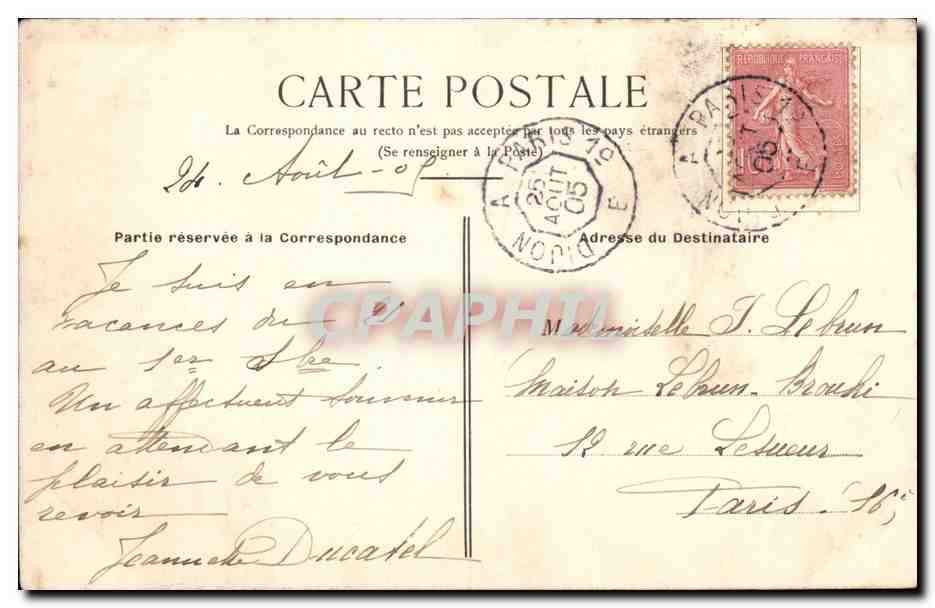 RÉPUBLIQUE FRANÇAISE
CARTE POSTALE
La Correspondance au recto n'est pas acceptée par tous les pays étrangers
(Se renseigner à la Poste)
24 Août - 05
A PARIS 1º E
25
AOUT
05
DIJON
PARIS 1º E
AOUT
05
DIJON
Partie réservée à la Correspondance
Je suis en
vacances du 21
au 1er 8bre
Un affectueux souvenir
en attendant le
plaisir de vous
revoir
Jeannette Ducatel
Adresse du Destinataire
Mademoiselle J. Lebrun
Maison Lebrun-
12 rue Lesueur
Paris. 16e
CPAPHIL